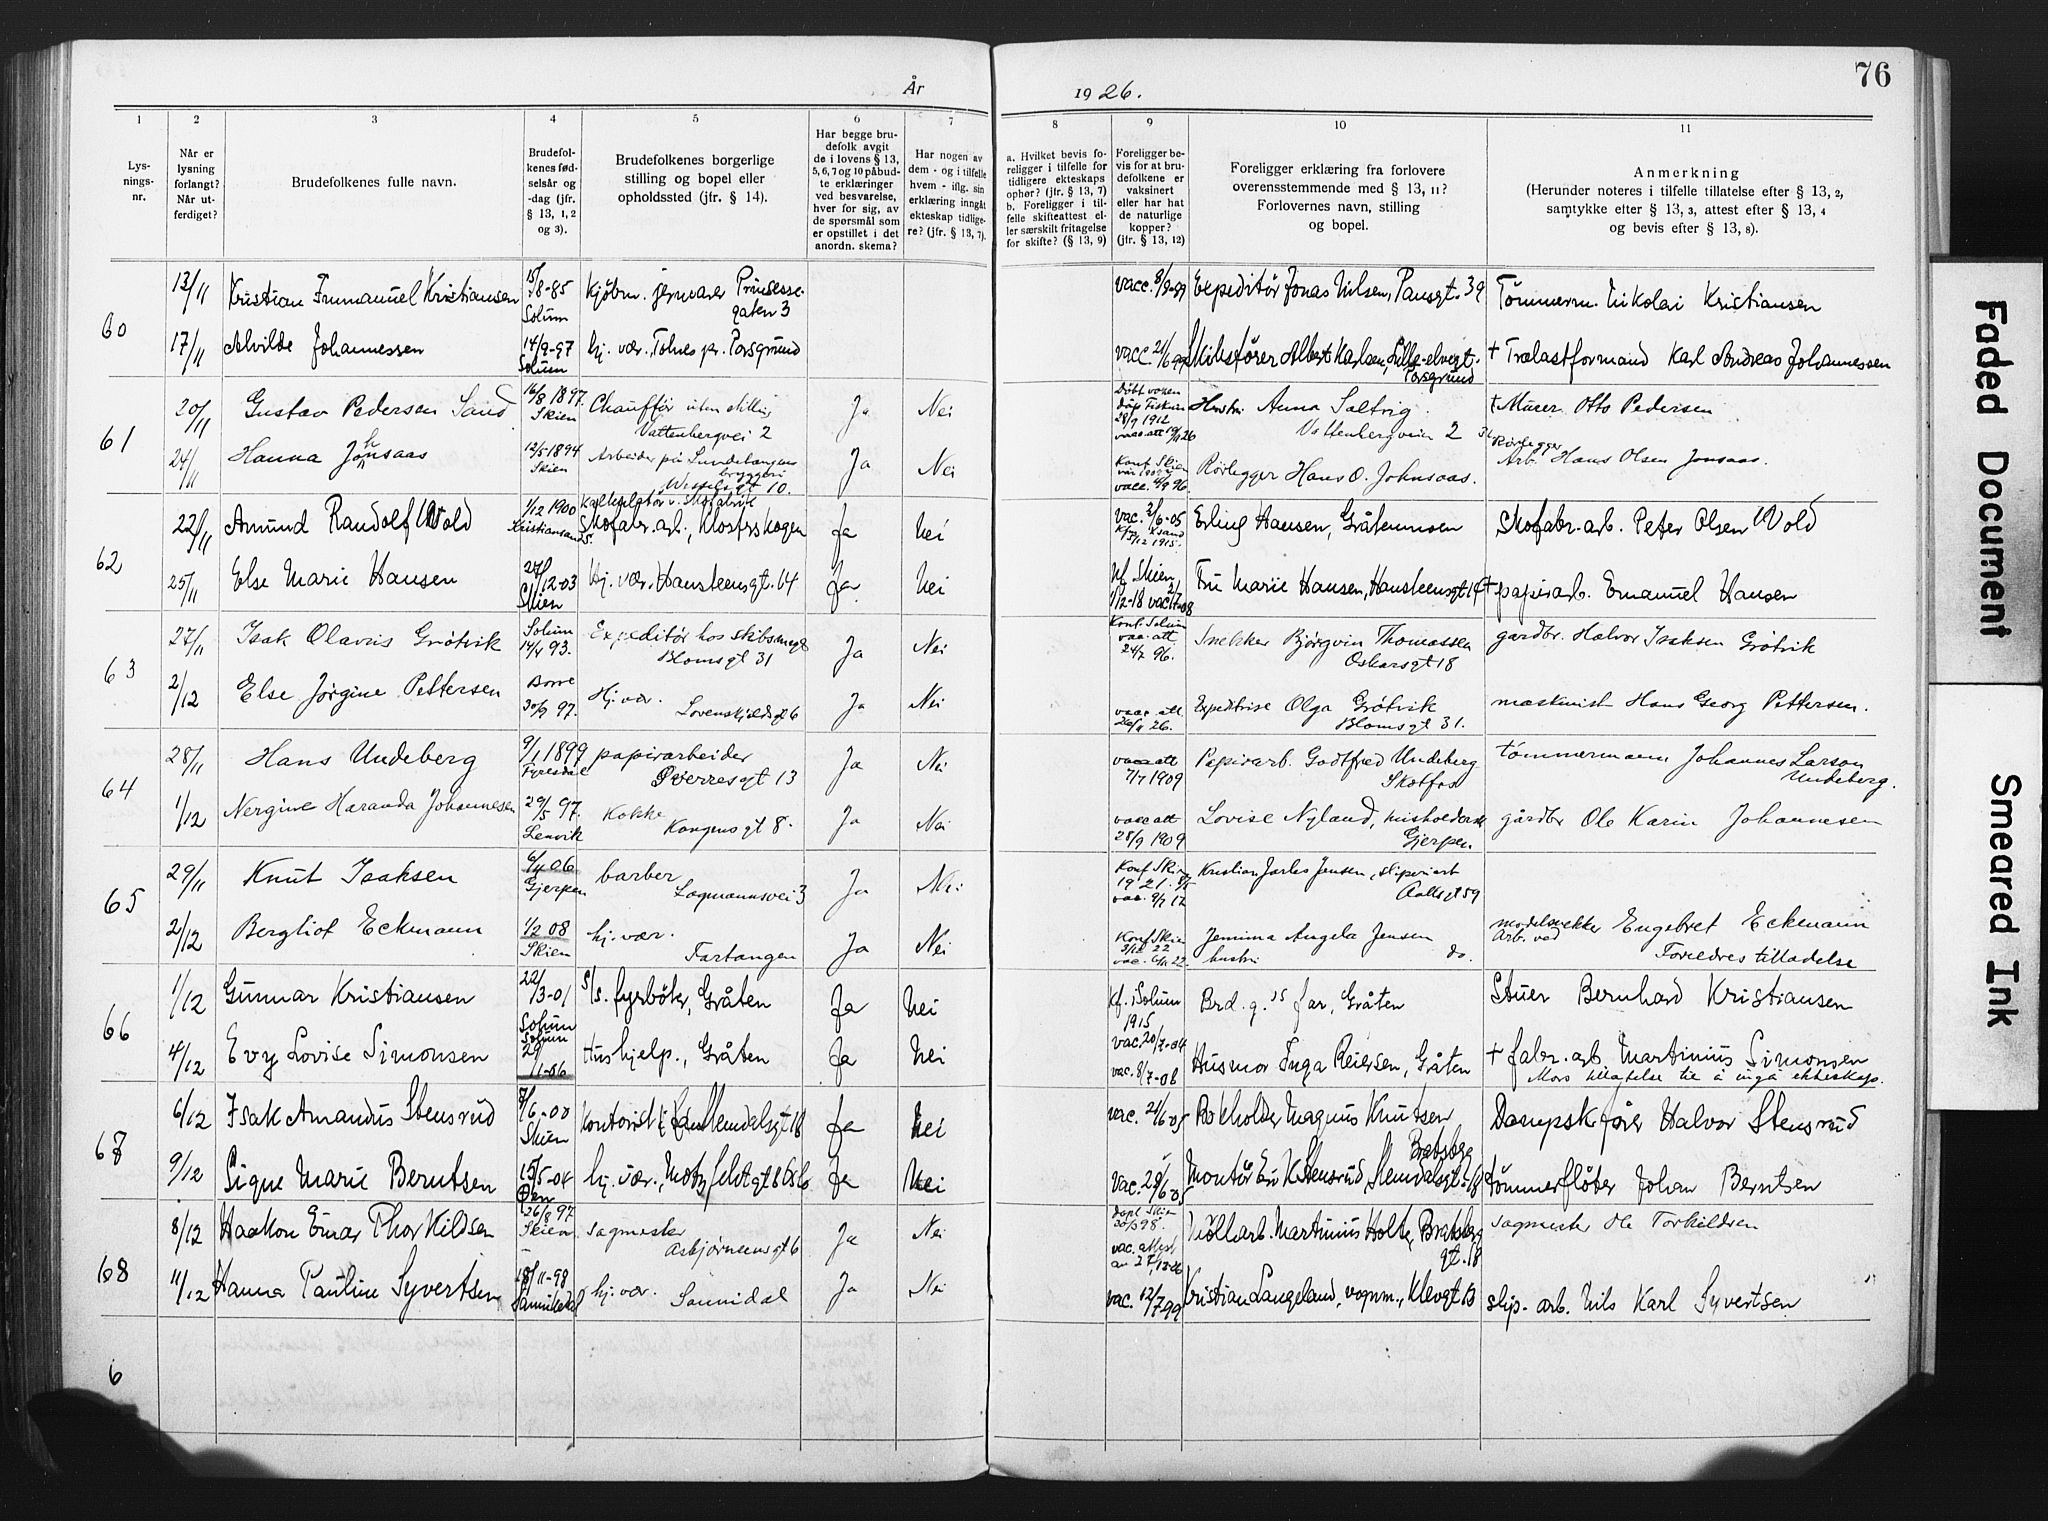 År
1926.
76
1 2 3 4 5 6 7 8 9 10 11
Lys-
nings-
nr.
Når er
lysning
forlangt?
Når ut-
ferdiget?
Brudefolkenes fulle navn.
Brudefol-
kenes fød-
selsår og
-dag (jfr.
§ 13, 1, 2
og 3).
Brudefolkenes borgerlige
stilling og bopel eller
opholdssted (jfr. § 14).
Har begge bru-
defolk avgit
de i lovens § 13,
5, 6, 7 og 10 påbud-
te erklæringer
ved besvarelse,
hver for sig, av
de spørsmål som
er opstillet i det
anordn. skema?
Har nogen av
dem - og i tilfelle
hvem - iflg. sin
erklæring inngåt
ekteskap tidlige-
re? (jfr. § 13, 7).
a. Hvilket bevis fo-
religger i tilfelle for
tidligere ekteskaps
ophør? (jfr. § 13, 7)
b. Foreligger i til-
felle skifteattest el-
ler særskilt fritagelse
for skifte? (§ 13, 9)
Foreligger be-
vis for at bru-
defolkene er
vaksinert
eller har hat
de naturlige
kopper?
(jfr. § 13, 12)
Foreligger erklæring fra forlovere
overensstemmende med § 13, 11?
Forlovernes navn, stilling
og bopel.
Anmerkning
(Herunder noteres i tilfelle tillatelse efter § 13, 2,
samtykke efter § 13, 3, attest efter § 13, 4
og bevis efter § 13, 8).
60
13/11 Kristian Immanuel Kristiansen 15/8-85 Solum Kjøbm. jernvarer Prinsesse-
gaten 3 vacc. 8/9-99 Expeditør Jonas Nilsen, Pausgt. 39 Tömmerm. Nikolai Kristiansen
17/11 Alvilde Johannessen 14/9-97 Solum hj. vær. Tolnes pr. Porsgrund vacc. 21/6 99 Skibsfører Albert Karlsen, Lille-elvegt. Porsgrund † Trælastformand Karl Andreas Johannessen
61
20/11 Gustav Pedersen Sand 16/8 1897. Skien Chauffør uten stilling
Vattenbergvei 2 Ja Nei 28/9 1912 Hustru Anna Saltvig.
Vattenbergveien 2 † Murer Otto Pedersen
24/11 Hanna Johnsaas 12/5 1894 Skien Arbeider på Lundetangens
bryggeri
Wesselsgt 10. Ja Nei Konf. Skien
vacc. 4/9 96. Rørlegger Hans O. Johnsaas. Rørlegger
Arb. Hans Olsen Jonsaas.
62
22/11 Amund Randolf Wold 1/12 1900 Kristiansand S. Kalkulatør v. Skofabrik
Skofabr. arb., Klosterskogen Ja Nei vac. 2/6-05 Erling Hansen, Gråtenmoen Skofabr. arb. Peter Olsen Wold
25/11 Else Marie Hansen 12-03 Skien Hj. vær. Hansteensgt. 14 Ja Nei Kf. Skien Fru Marie Hansen, Hansteensgt 14 † papirarb. Emanuel Hansen
63
27/11 Isak Olavus Grötvik Solum 14/4 93. Expeditör hos skibsmegl
Blomsgt 31 Ja Nei Konf. Solum
vacc. att
24/7 96. Snekker Bjørgvin Thomassen
Oskarsgt 18 gårdbr. Halvor Isaksen Grötvik
2/12 Else Jörgine Pettersen Borre 30/9 97. Hj. vær.
Løvenskjoldsgt 6 Ja Nei vacc. att.
26. Expeditrise Olga Grötvik
Blomsgt 31. maskinist Hans Georg Pettersen.
64
28/11 Hans Undeberg 9/1 1899 Fyresdal papirarbeider
Sverresgt 13 Ja Nei vacc att
7/7 1909 Papirarb. Godtfred Undeberg
Skotfos tömmermann Johannes Larson
Undeberg.
1/12 Nergine Haranda Johannesen 29/5 97. Lenvik Kokke
Kongensgt 8. Ja Nei vacc att
28/9 1909 Lovise Nyland, husholderske
Gjerpen gårdbr Ole Karin Johannesen
65
29/11 Knut Isaksen 6/4 06 Gjerpen barber
Lagmannsvei 3 Ja Nei Konf Skien
1921. Kristian Jarles Jensen, sliperiarb
2/12 Bergliot Eckmann 1/2 08 Skien hj. vær.
Fartangen Ja Nei Konf Skien
3/12 22 Jemima Angela Jensen
hustru do. modelsnekker
Arb. ved Engebret Eckmann
Foreldres tilladelse
66
1/12 Gunnar Kristiansen 22/3-01 Solum S/s. fyrböter, Gråten Ja Nei Kf. i Solum
1915 Brd. g.s far, Gråten Stuer Bernhard Kristiansen
4/12 Evy Lovise Simonsen Solum 29/1-06 Hushjelp., Gråten Ja Nei vac. 20/7-04
vac. 8/7-08 Husmor Inga Reiersen, Gråten † fabr. arb. Martinius Simonsen
Mors tillatelse til å inngå ekteskap.
67
6/12 Isak Amandus Stensrud 7/6-00 Skien Kontorist, Hemdalsgt 18 Ja Nei vac. 21/6 05 Bokholder Magnus Knutsen
Bratsberg Dampsk. fører Halvor Stensrud
9/12 Signe Marie Berntsen 15/5-04 hj. vær., Motzfeldtgt 868 b Ja Nei vac. 28/6 05 Montör Stensrud, Hemdalsgt. 18 Tömmerflöter Johan Berntsen
68
8/12 Haakon Einar Thorkildsen 26/8 97. Skien sagmester
Asbjørnsensgt 6 Ja Nei döpt Skien Möllarb. Martinius Holte, Bratsberg
gt. 18 sagmester Ole Torkildsen
11/12 Hanna Pauline Syvertsen 18/11-98 Sannikedal hj. vær. Sannidal Ja Nei vac. 12/7 99 Kristian Langeland, vognm., Klevgt. 13 slip. arb. Nils Karl Syvertsen
6
Faded Document
Smeared Ink